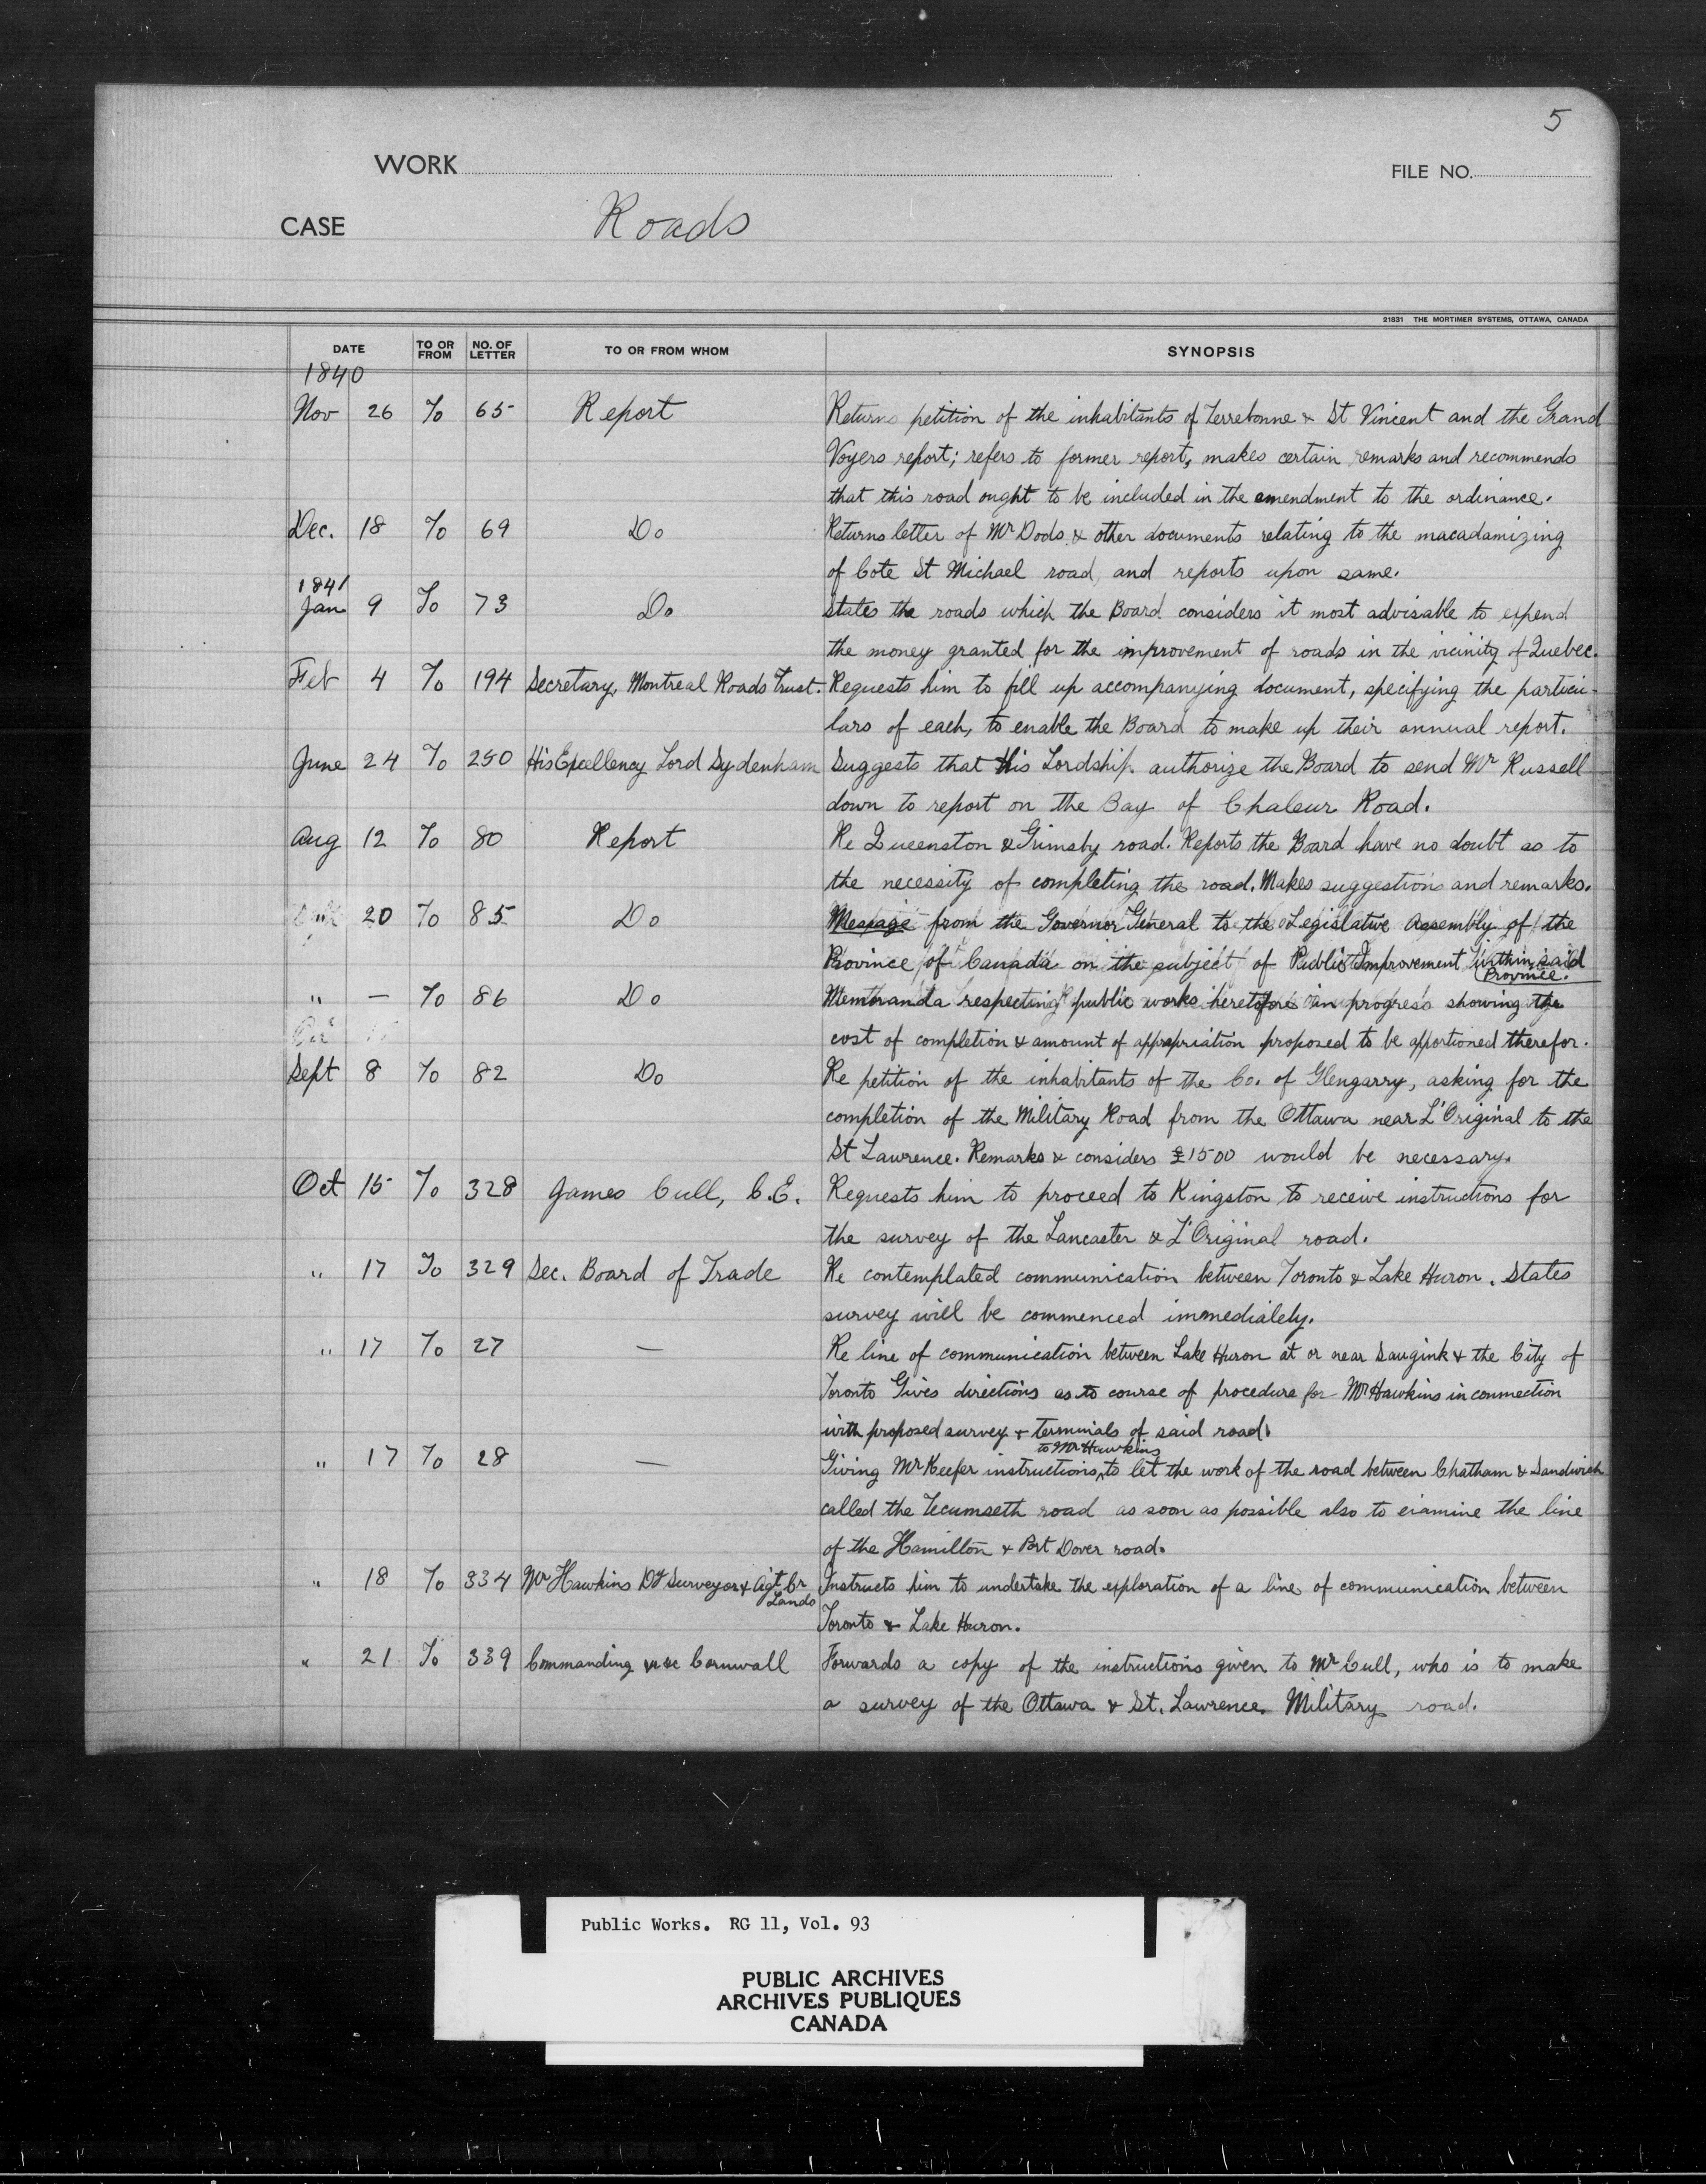 5
WORK
FILE NO.
CASE Roads
21831 THE MORTIMER SYSTEMS, OTTAWA, CANADA
DATE TO OR FROM NO. OF LETTER TO OR FROM WHOM SYNOPSIS
1840
Nov 26 To 65 Report Returns petition of the inhabitants of Terrebonne & St Vincent and the Grand
Voyers report; refers to former report, makes certain remarks and recommends
that this road ought to be included in the amendment to the ordinance.
Dec. 18 To 69 Do Returns letter of Mr Dods & other documents relating to the macadamizing
of Cote St Michael road, and reports upon same.
1841
Jan 9 To 73 Do States the roads which the Board considers it most advisable to expend
the money granted for the improvement of roads in the vicinity of Quebec.
Feb 4 To 194 Secretary, Montreal Roads Trust. Requests him to fill up accompanying document, specifying the particu-
lars of each, to enable the Board to make up their annual report.
June 24 To 250 His Excellency Lord Sydenham Suggests that His Lordship authorize the Board to send Mr Russell
down to report on the Bay of Chaleur Road.
Aug 12 To 80 Report Re Queenston & Grimsby road. Reports the Board have no doubt as to
the necessity of completing the road. Makes suggestions and remarks.
" 20 To 85 Do Message from the Governor General to the Legislative Assembly of the
Province of Canada on the subject of Public Improvement within said
Province.
" — To 86 Do Memoranda respecting public works heretofore in progress showing the
cost of completion & amount of appropriation proposed to be apportioned therefor.
Sept 8 To 82 Do Re petition of the inhabitants of the Co. of Glengarry, asking for the
completion of the Military Road from the Ottawa near L'Original to the
St Lawrence. Remarks & considers £1500 would be necessary.
Oct 15 To 328 James Cull, C.E. Requests him to proceed to Kingston to receive instructions for
the survey of the Lancaster & L'Original road.
" 17 To 329 Sec. Board of Trade Re contemplated communication between Toronto & Lake Huron. States
survey will be commenced immediately.
" 17 To 27 — Re line of communication between Lake Huron at or near Saugink & the City of
Toronto Gives directions as to course of procedure for Mr Hawkins in connection
with proposed survey & terminals of said road.
to Mr Hawkins
" 17 To 28 — Giving Mr Keefer instructions, to let the work of the road between Chatham & Sandwich
called the Tecumseth road as soon as possible also to examine the line
of the Hamilton & Port Dover road.
" 18 To 334 Mr Hawkins Dy Surveyor & Agt Cr Lands Instructs him to undertake the exploration of a line of communication between
Toronto & Lake Huron.
" 21 To 339 Commanding Cornwall Forwards a copy of the instructions given to Mr Cull, who is to make
a survey of the Ottawa & St. Lawrence Military road.
Public Works. RG 11, Vol. 93
PUBLIC ARCHIVES
ARCHIVES PUBLIQUES
CANADA